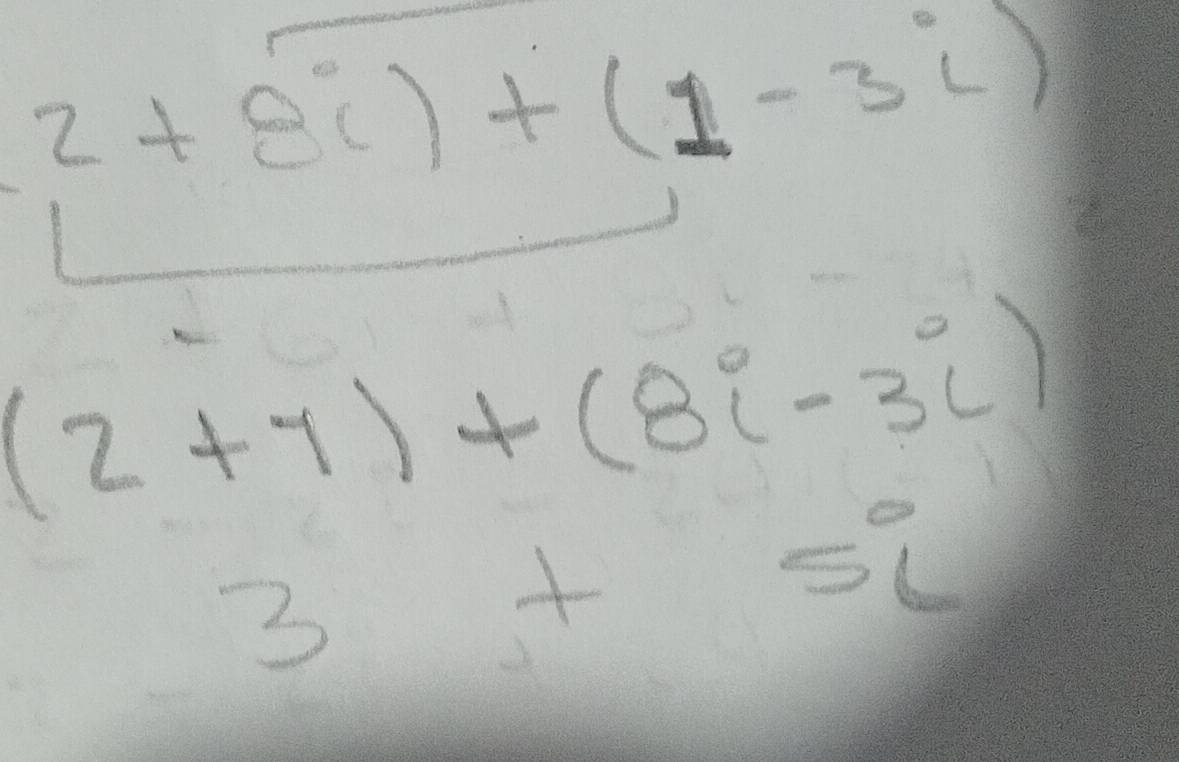 (2 + 8i) + (1 - 3i)
(2 + 1) + (8i - 3i)
3 + 5i